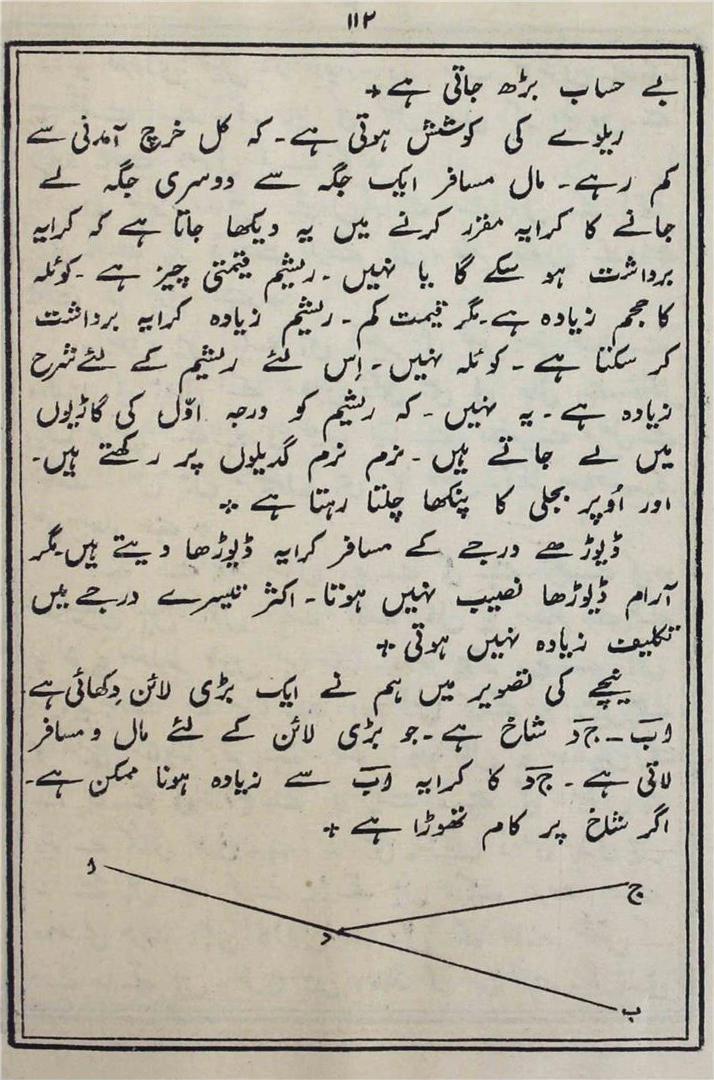 ۱۱۲
بے حساب بڑھ جاتی ہے+
ریلوے کی کوشش ہوتی ہے۔ کہ کل خرچ آمدنی سے
کم رہے۔ مال مسافر ایک جگہ سے دوسری جگہ لے
جانے کا کرایہ مقرر کرنے میں یہ دیکھا جاتا ہے کہ کرایہ
برداشت ہو سکے گا یا نہیں۔ ریشیم قیمتی چیز ہے۔ کوئلہ
کا حجم زیادہ ہے۔ مگر قیمت کم۔ ریشیم زیادہ کرایہ برداشت
کر سکتا ہے۔ کوئلہ نہیں۔ اِس لئے ریشیم کے لئے شرح
زیادہ ہے۔ یہ نہیں۔ کہ ریشیم کو درجہ اوّل کی گاڑیوں
میں لے جاتے ہیں۔ نرم نرم گدیلوں پر رکھتے ہیں۔
اور اُوپر بجلی کا پنکھا چلتا رہتا ہے +
ڈیوڑھے درجے کے مسافر کرایہ ڈیوڑھا دیتے ہیں۔ مگر
آرام ڈیوڑھا نصیب نہیں ہوتا۔ اکثر تیسرے درجے میں
تکلیف زیادہ نہیں ہوتی +
نیچے کی تصویر میں ہم نے ایک بڑی لائن دِکھائی ہے
اب۔ ج د شاخ ہے۔ جو بڑی لائن کے لئے مال و مسافر
لاتی ہے۔ ج د کا کرایہ اب سے زیادہ ہونا ممکن ہے۔
اگر شاخ پر کام تھوڑا ہے +
ا
ج
د
ب